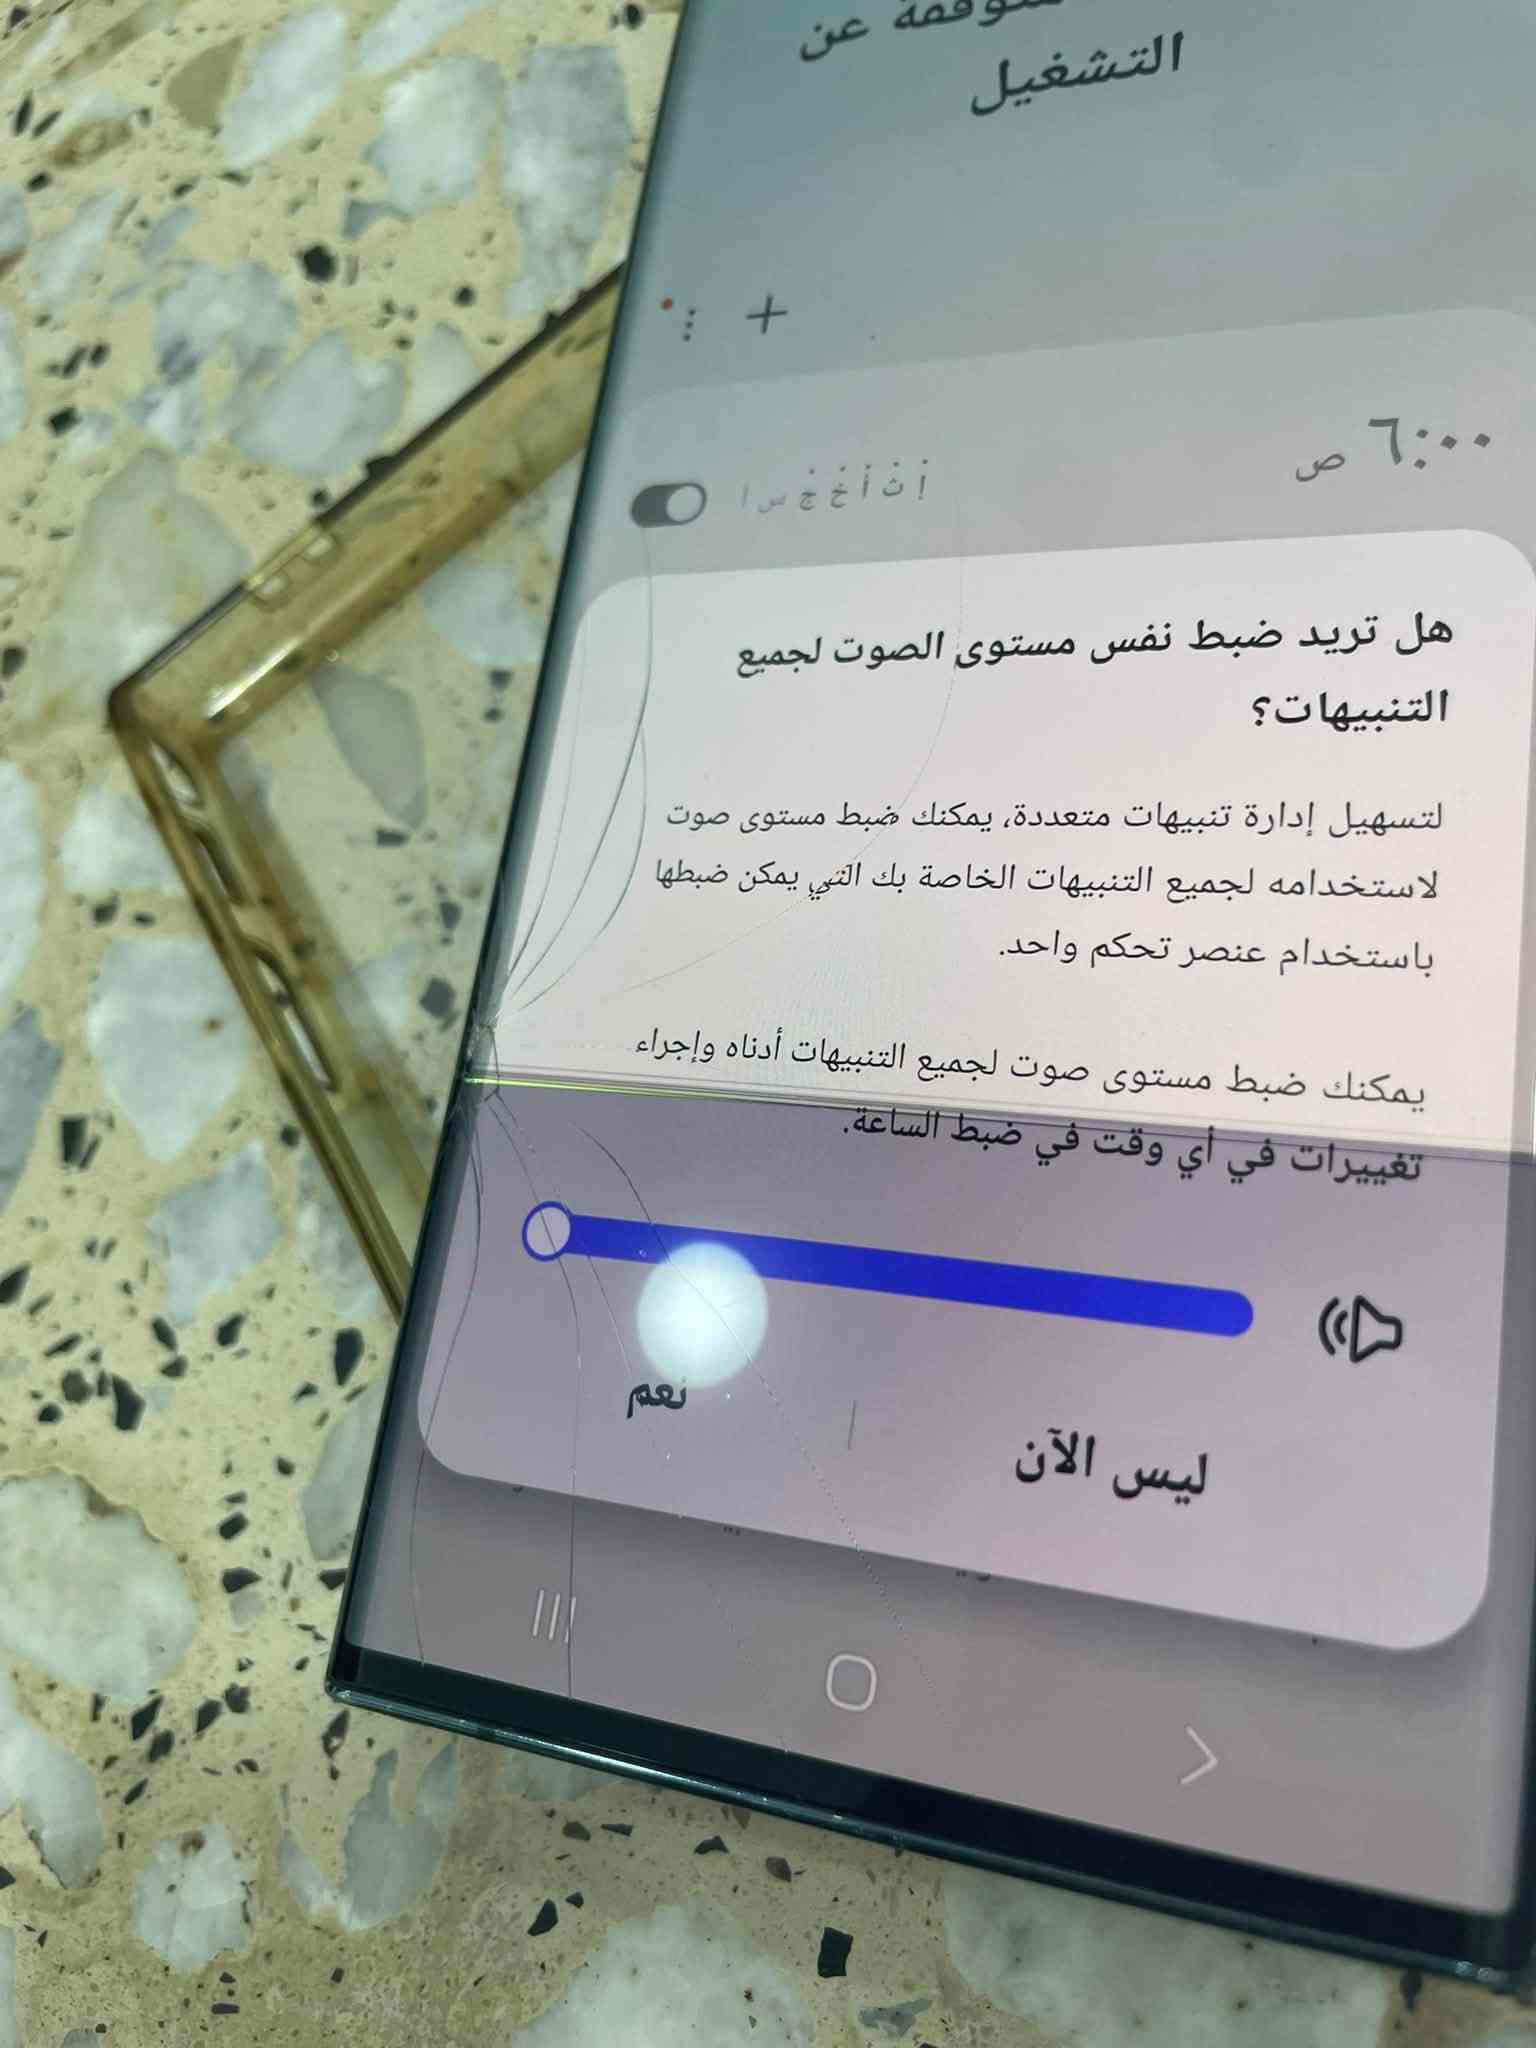 عن
التشغيل
٦:٠٠ ص
إ ث أ خ ج س ا
هل تريد ضبط نفس مستوى الصوت لجميع
التنبيهات؟
لتسهيل إدارة تنبيهات متعددة، يمكنك ضبط مستوى صوت
لاستخدامه لجميع التنبيهات الخاصة بك التي يمكن ضبطها
باستخدام عنصر تحكم واحد.
يمكنك ضبط مستوى صوت لجميع التنبيهات أدناه وإجراء
تغييرات في أي وقت في ضبط الساعة.
ليس الآن
نعم